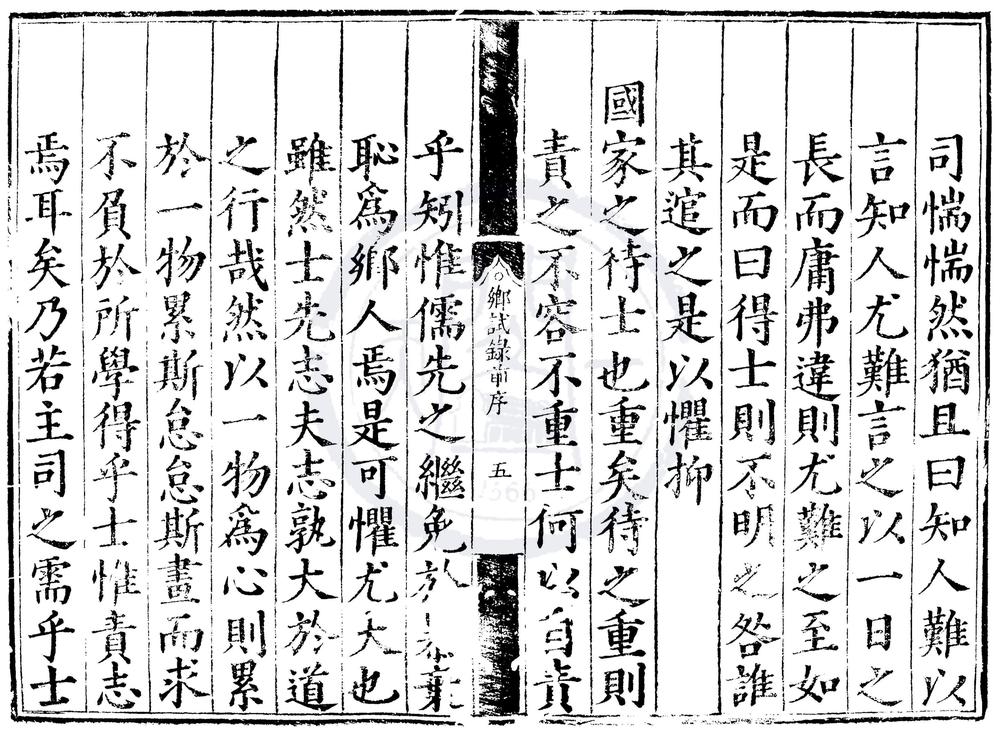 司惴惴然猶且曰知人難以
言知人尤難言之以一日之
長而庸弗違則尤難之至如
是而曰得士則不明之咎誰
其逭之是以懼抑
國家之待士也重矣待之重則
責之不容不重士何以自責
鄉試錄前序
五
乎矧惟儒先之繼免於暴棄
恥爲鄉人焉是可懼尤大也
雖然士先志夫志孰大於道
之行哉然以一物爲心則累
於一物累斯怠怠斯畫而求
不負於所學得乎士惟責志
焉耳矣乃若主司之需乎士